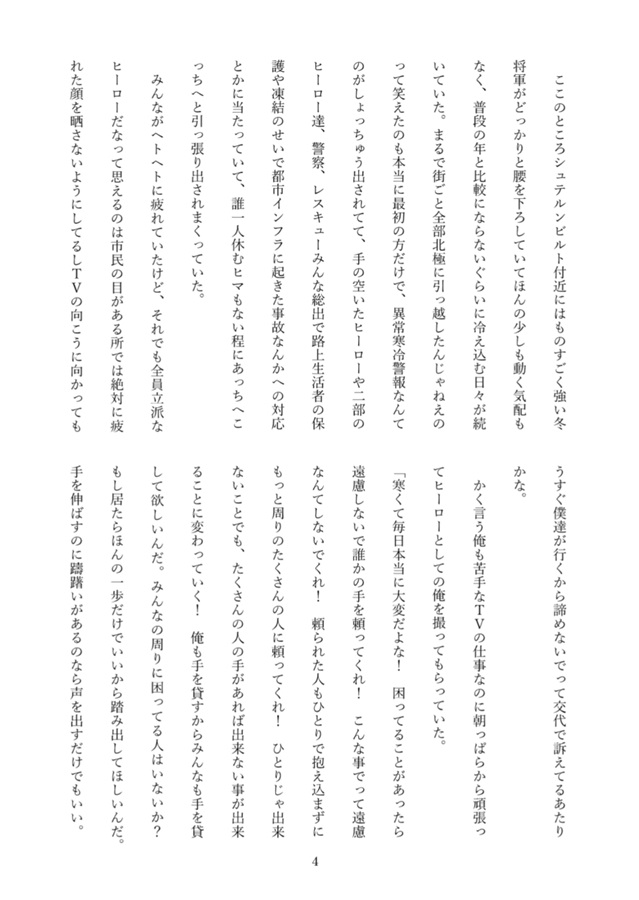 ここのところシュテルンビルト付近にはものすごく強い冬
将軍がどっかりと腰を下ろしていてほんの少しも動く気配も
なく、普段の年と比較にならないぐらいに冷え込む日々が続
いていた。まるで街ごと全部北極に引っ越したんじゃねえの
って笑えたのも本当に最初の方だけで、異常寒冷警報なんて
のがしょっちゅう出されてて、手の空いたヒーローや二部の
ヒーロー達、警察、レスキューみんな総出で路上生活者の保
護や凍結のせいで都市インフラに起きた事故なんかへの対応
とかに当たっていて、誰一人休むヒマもない程にあっちへこ
っちへと引っ張り出されまくっていた。
みんながヘトヘトに疲れていたけど、それでも全員立派な
ヒーローだなって思えるのは市民の目がある所では絶対に疲
れた顔を晒さないようにしてるしTVの向こうに向かっても
うすぐ僕達が行くから諦めないでって交代で訴えてるあたり
かな。
かく言う俺も苦手なTVの仕事なのに朝っぱらから頑張っ
てヒーローとしての俺を撮ってもらっていた。
「寒くて毎日本当に大変だよな！　困ってることがあったら
遠慮しないで誰かの手を頼ってくれ！　こんな事でって遠慮
なんてしないでくれ！　頼られた人もひとりで抱え込まずに
もっと周りのたくさんの人に頼ってくれ！　ひとりじゃ出来
ないことでも、たくさんの人の手があれば出来ない事が出来
ることに変わっていく！　俺も手を貸すからみんなも手を貸
して欲しいんだ。みんなの周りに困ってる人はいないか？
もし居たらほんの一歩だけでいいから踏み出してほしいんだ。
手を伸ばすのに躊躇いがあるのなら声を出すだけでもいい。
4